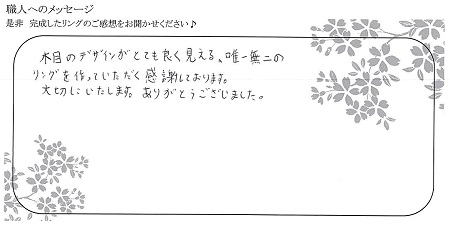 職人へのメッセージ
是非 完成したリングのご感想をお聞かせください♪
木目のデザインがとても良く見える、唯一無二の
リングを作っていただく感謝しております。
大切にいたします。ありがとうございました。